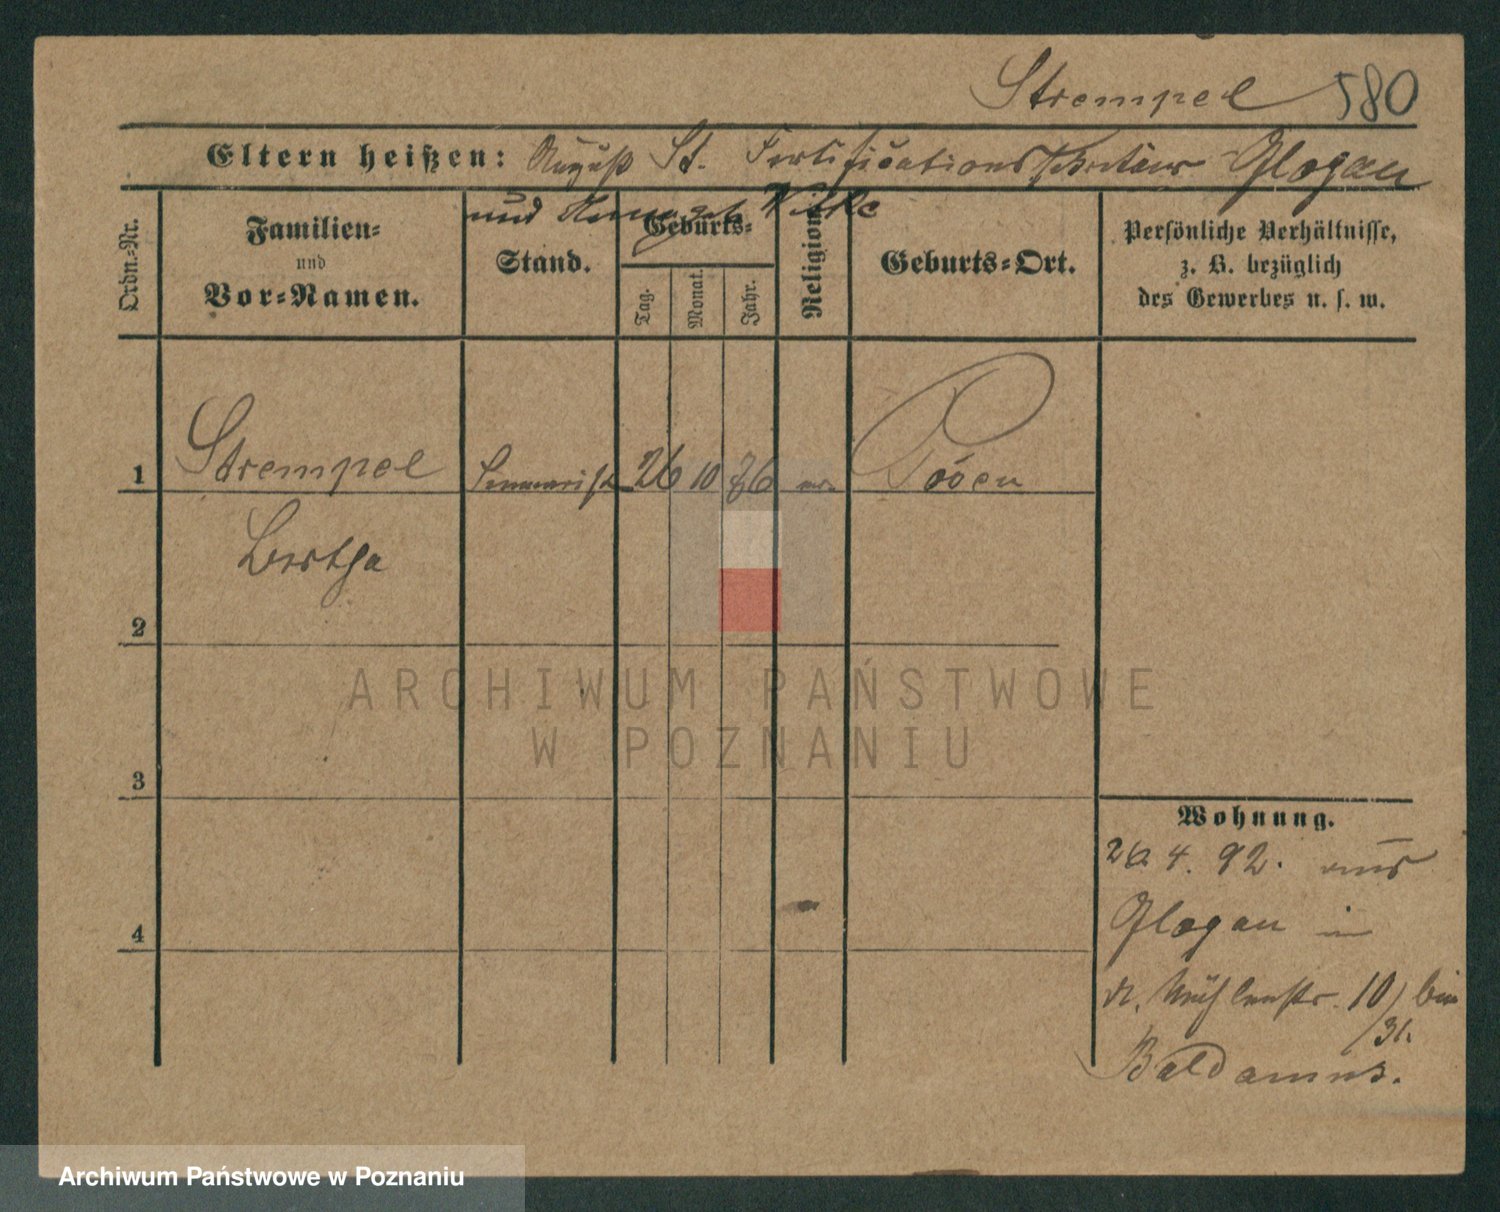 Strempel 580
Eltern heißen: August St. Fortificationssekretär Glogau
und Anna geb. Wilke
Ordn.-Nr.
Familien-
und
Vor-Namen.
Stand.
Geburts-
Tag.
Monat.
Jahr.
Religion.
Geburts-Ort.
Persönliche Verhältnisse,
z. B. bezüglich
des Gewerbes u. s. w.
1 Strempel Seminarist 26 10 76 ev. Posen
Bertha
2
3
4
Wohnung.
26. 4. 92. aus
Glogau in
Mühlenstr. 10 bei
31.
Baldamus.
ARCHIWUM PAŃSTWOWE
W POZNANIU
Archiwum Państwowe w Poznaniu